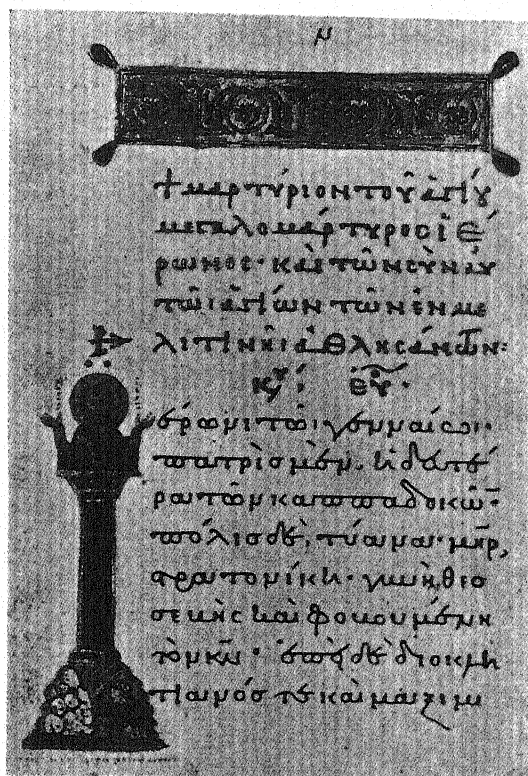 μ
+ μαρτύριον τοῦ ἁγίου
μεγαλομάρτυρος ἱέ
ρωνος· καὶ τῶν σὺν αυ
τῶι ἁγίων τῶν ἐν με
λιτινῆι ἀθλησάντων:
κε̄ εὐ·
έρωνι τῶι γενναίωι·
πατρὶς μὲν, ἡ δευτέ
ρα τῶν καππαδοκῶν·
πόλις δὲ, τύανα· μηρ,
στρατονίκη· γυνὴ, θεο
σεβὴς καὶ φοβουμένη
τὸν κν̄· δὲ διοκλη
τιανός τε καὶ μαξιμι